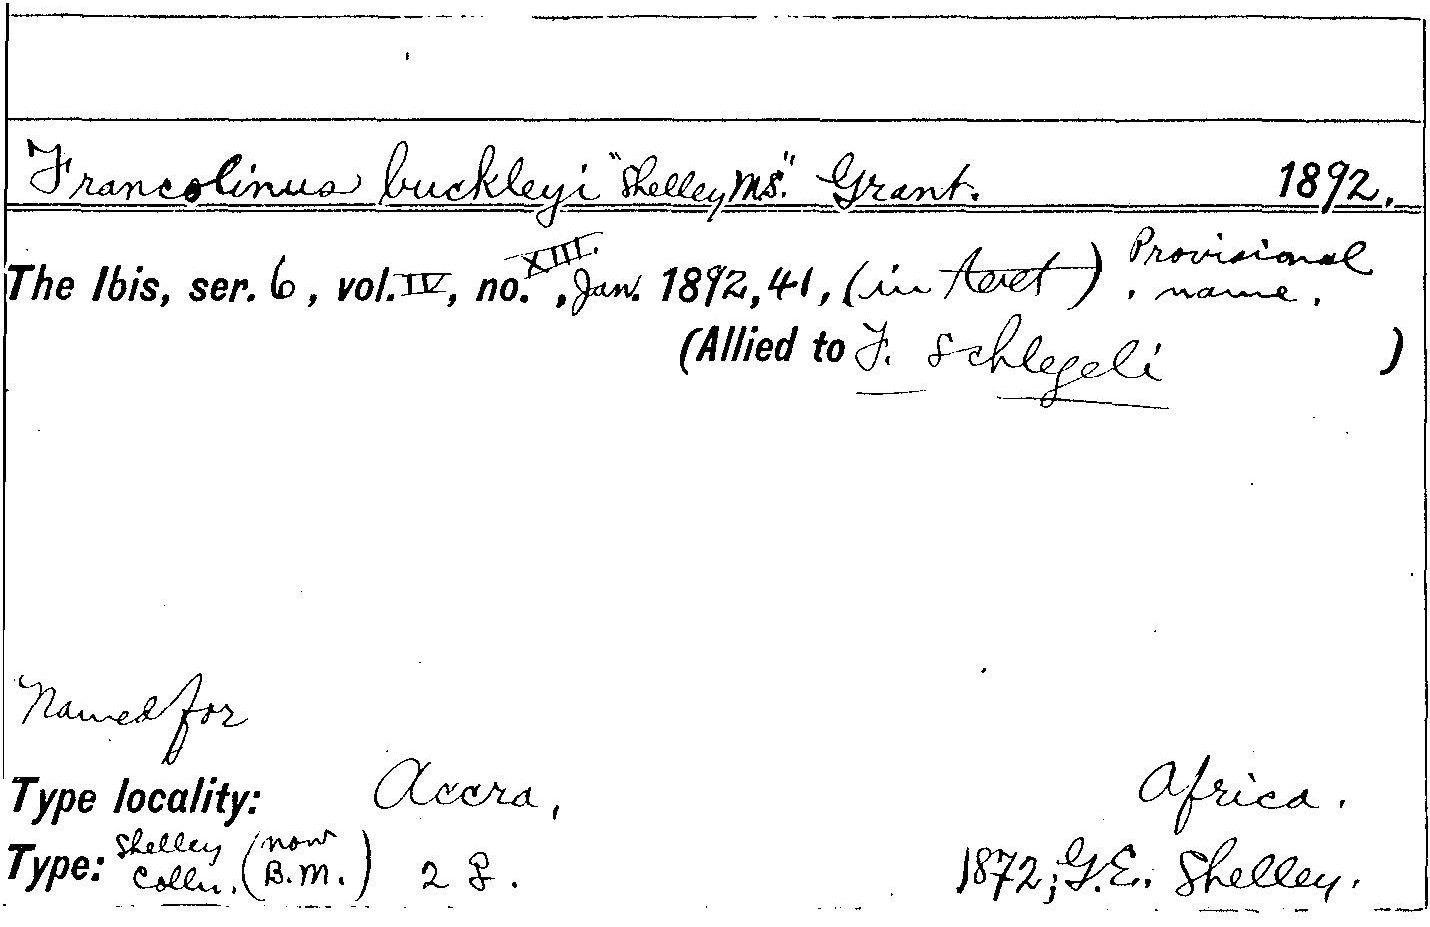 Francolinus buckleyi "Shelley MS." Grant. 1892.
The Ibis, ser. 6, vol. IV, no. XIII., Jan. 1892, 41, (in text). Provisional name.
(Allied to F. schlegeli )
Named for
Type locality: Accra, Africa.
Type: Shelley Colln. (now B.M.) 2 1872; G.E. Shelley.